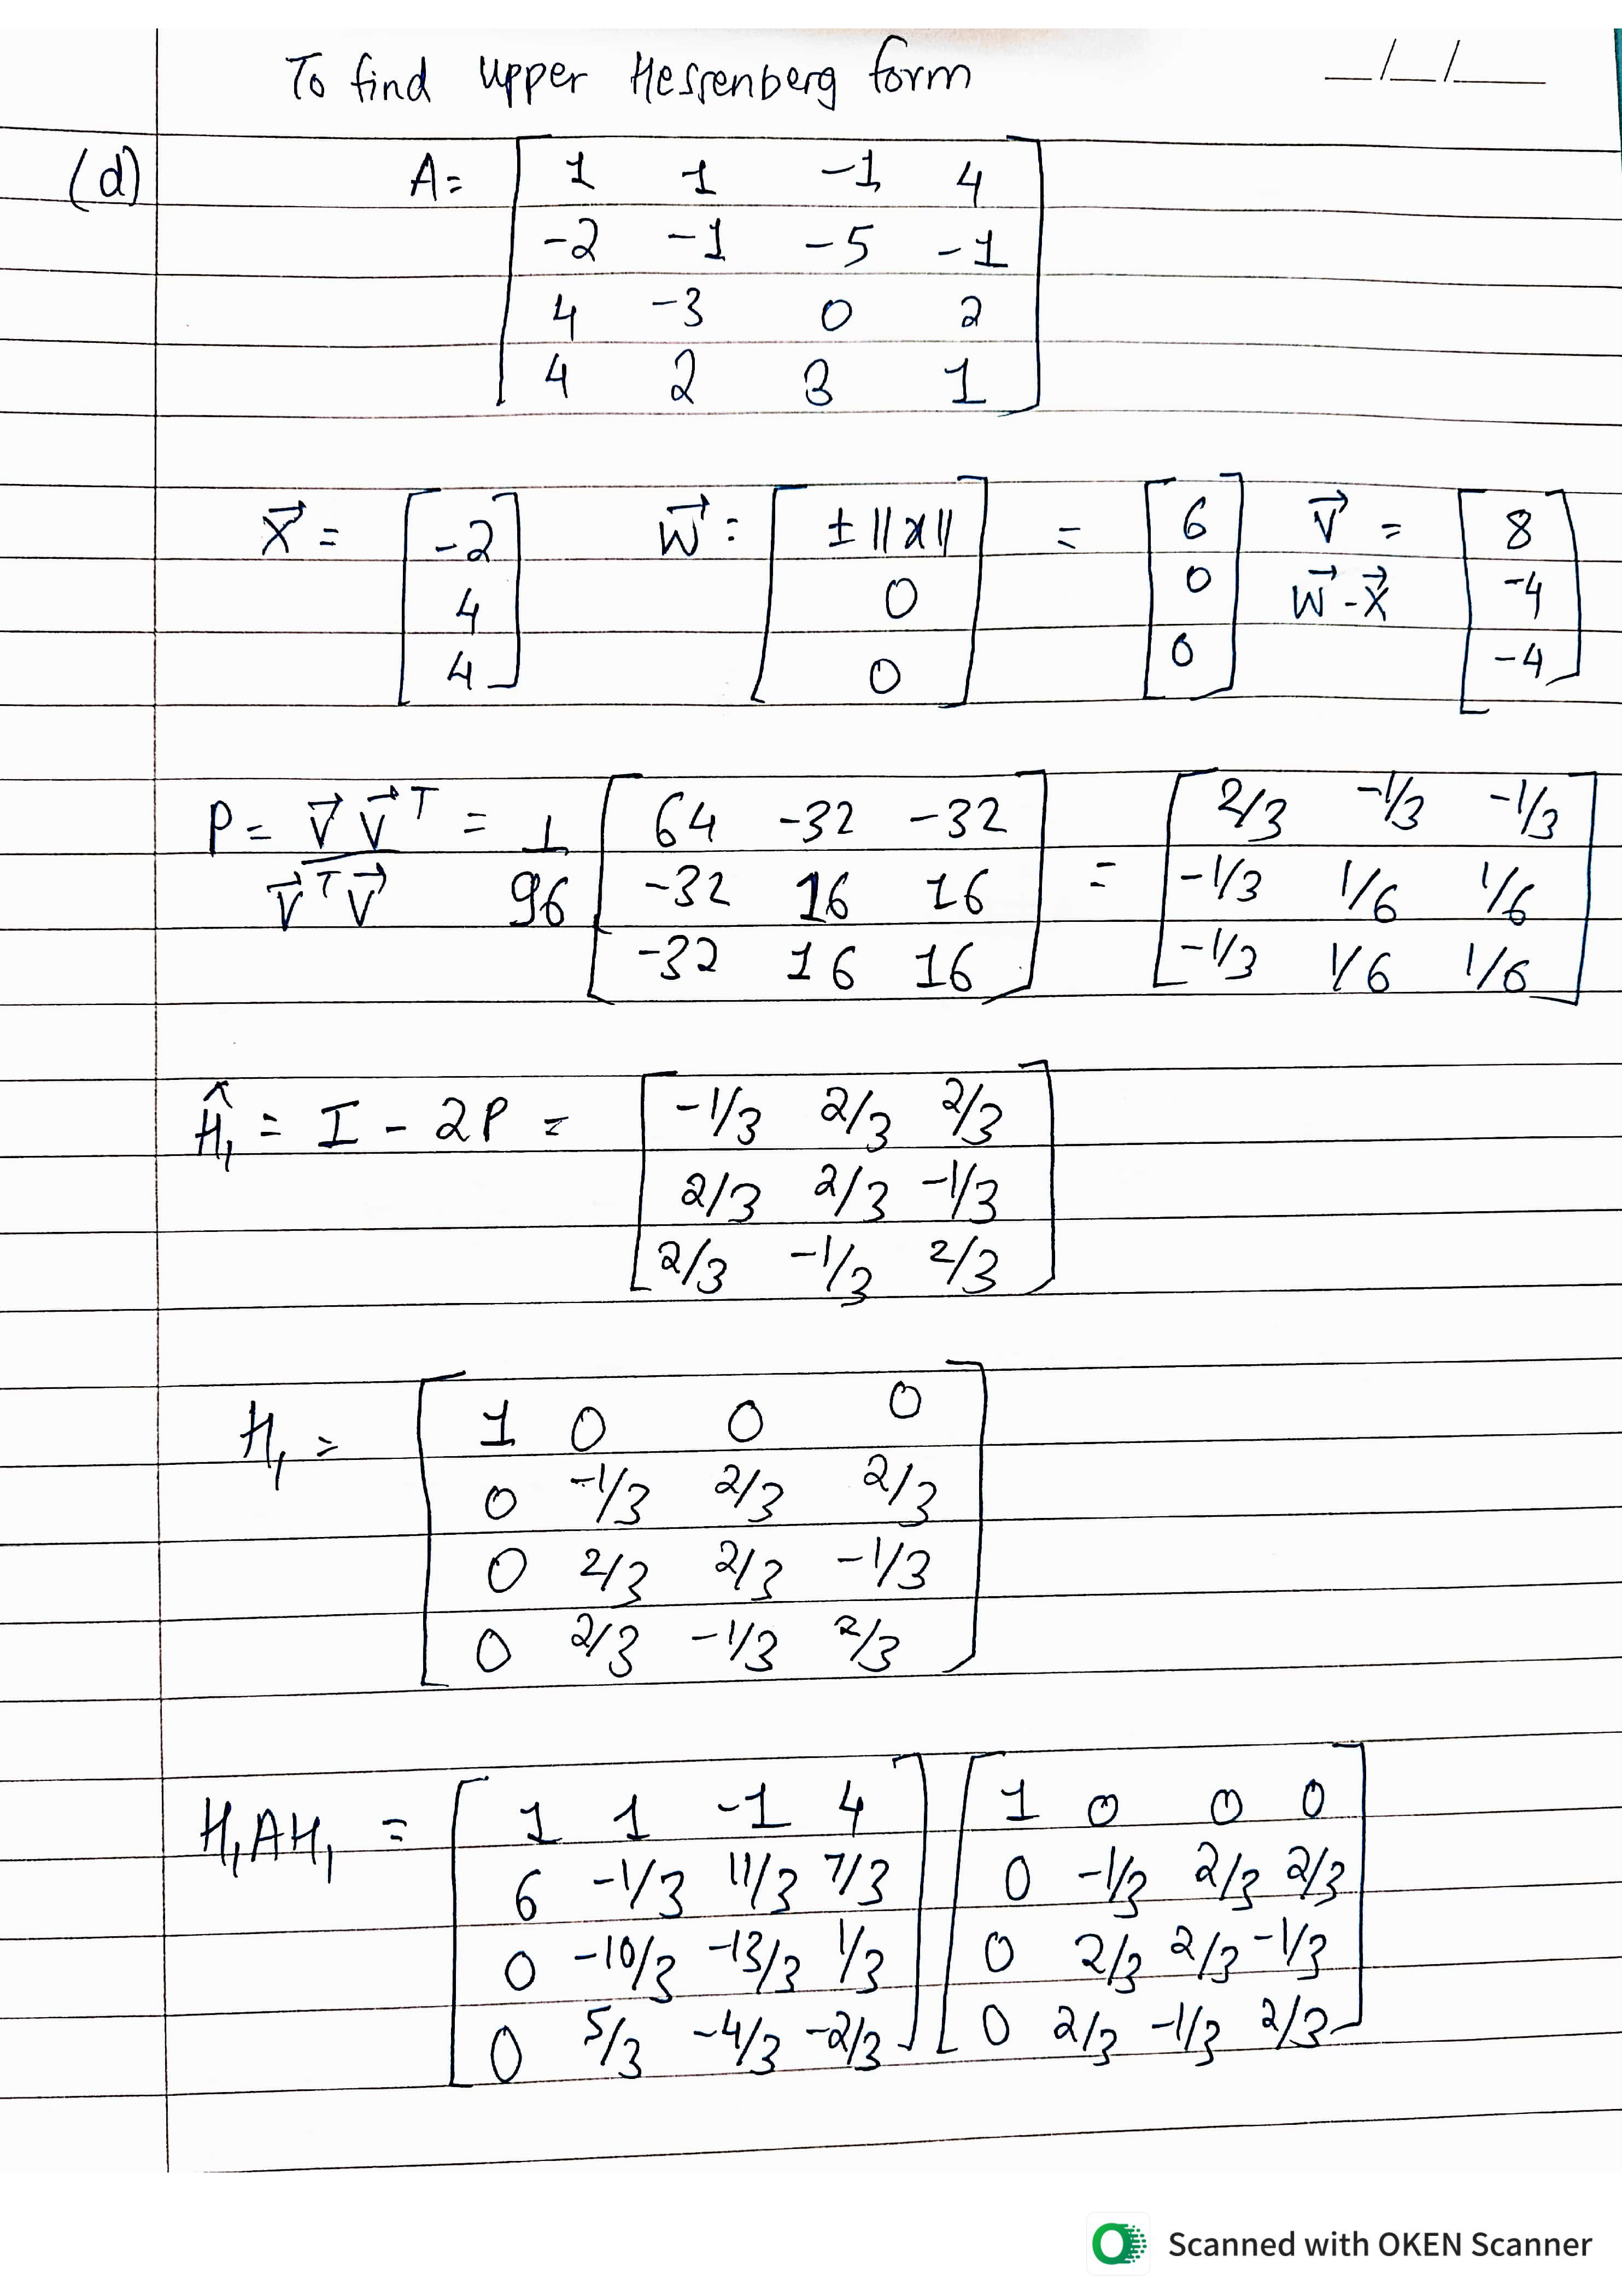 To find upper Hessenberg form
__/__/____
(d) A = [ 1 1 -1 4
-2 -1 -5 -1
4 -3 0 2
4 2 3 1 ]
X⃗ = [ -2 4 4 ] W⃗ = [ ±||x|| 0 0 ] = [ 6 0 0 ] V⃗ W⃗-X⃗ = [ 8 -4 -4 ]
P = V⃗ V⃗ᵀ / V⃗ᵀ V⃗ = 1/96 [ 64 -32 -32
-32 16 16
-32 16 16 ] = [ 2/3 -1/3 -1/3
-1/3 1/6 1/6
-1/3 1/6 1/6 ]
Ĥ₁ = I - 2P = [ -1/3 2/3 2/3
2/3 2/3 -1/3
2/3 -1/3 2/3 ]
H₁ = [ 1 0 0 0
0 -1/3 2/3 2/3
0 2/3 2/3 -1/3
0 2/3 -1/3 2/3 ]
H₁AH₁ = [ 1 1 -1 4
6 -1/3 11/3 7/3
0 -10/3 -13/3 1/3
0 5/3 -4/3 -2/3 ] [ 1 0 0 0
0 -1/3 2/3 2/3
0 2/3 2/3 -1/3
0 2/3 -1/3 2/3 ]
Scanned with OKEN Scanner